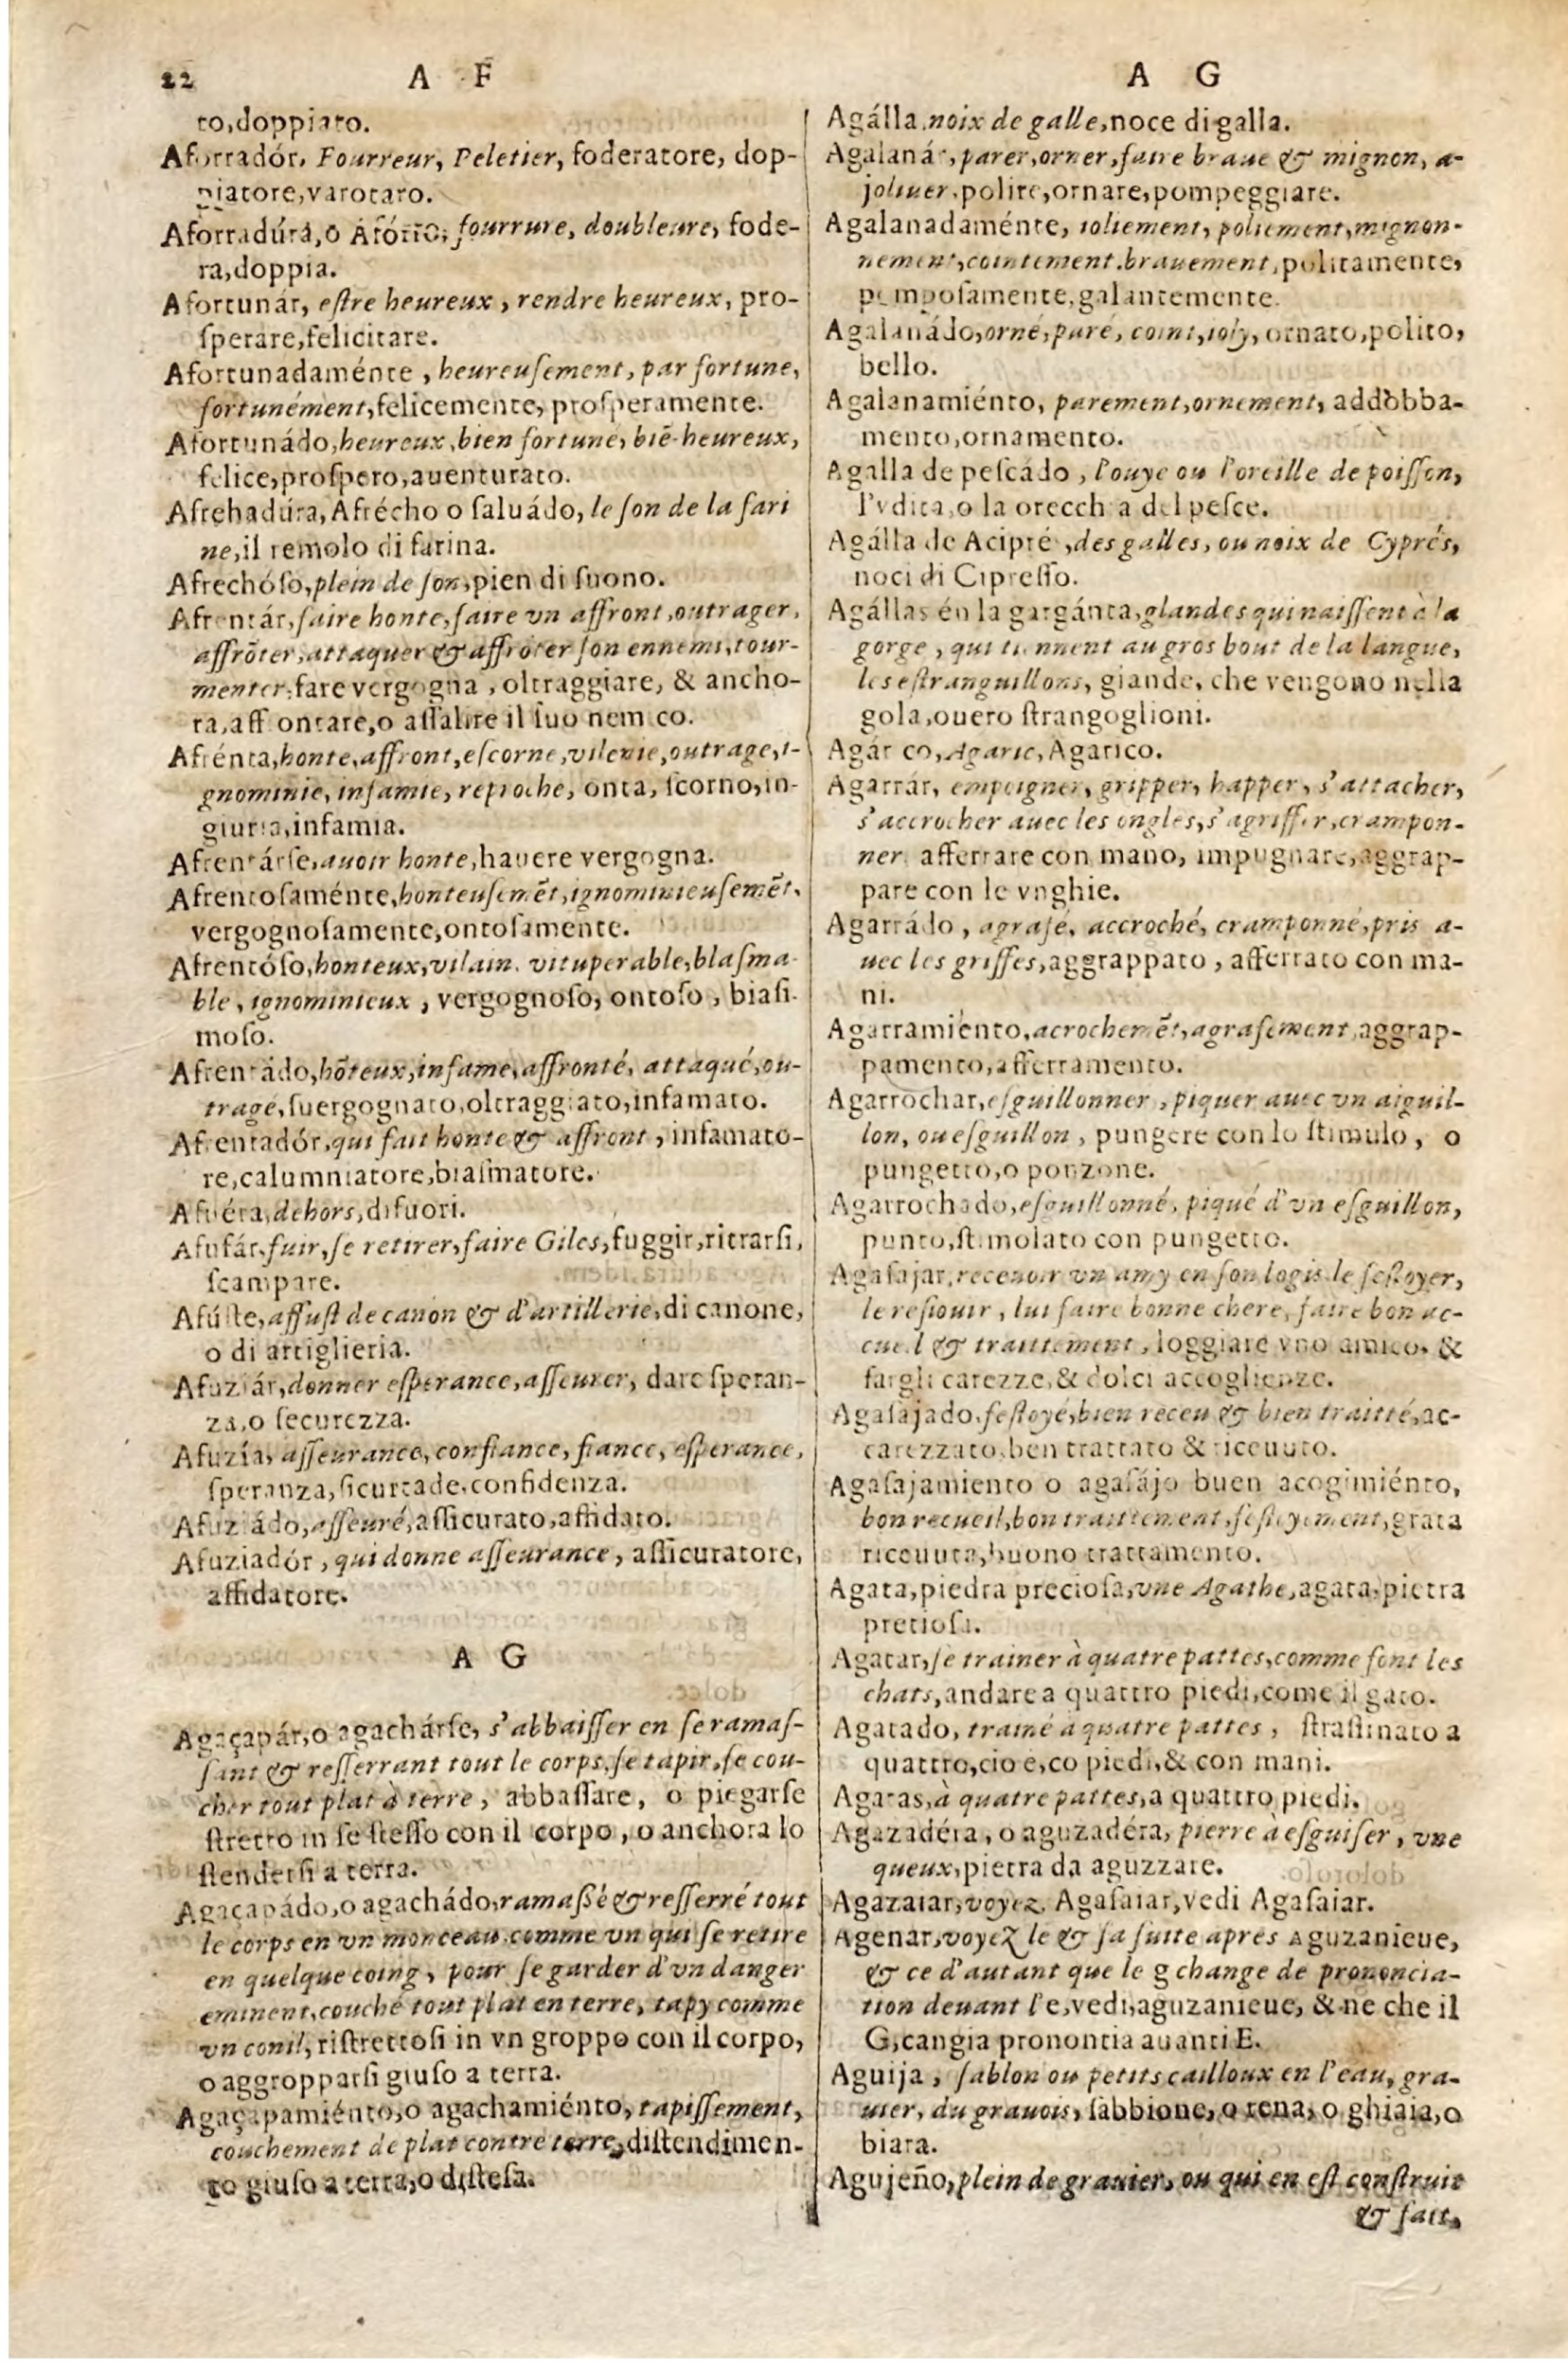 22 A F
to,doppiato.
Aforradór, Fourreur, Peletier, foderatore, dop-
piatore,varotaro.
Aforradúra,o Afórro, fourrure, doubleure, fode-
ra,doppia.
Afortunár, eſtre heureux, rendre heureux, pro-
ſperare,felicitare.
Afortunadaménte, heureuſement, par fortune,
fortunément,felicemente, proſperamente.
Afortunádo,heureux,bien fortuné, biē-heureux,
felice,proſpero,auenturato.
Afrehadúra, Afrécho o ſaluádo, le ſon de la fari
ne,il remolo di farina.
Afrechóſo,plein de ſon,pien di ſuono.
Afrentár,faire honte,faire vn affront,outrager,
affrōter,attaquer & affrōter ſon ennemi,tour-
menter,fare vergogna, oltraggiare, & ancho-
ra,affrontare,o aſſalire il ſuo nemico.
Afrénta,honte,affront,eſcorne,vilenie,outrage,i-
gnominie, infamie, reproche, onta, ſcorno,in-
giuria,infamia.
Afrentárſe,auoir honte,hauere vergogna.
Afrentoſaménte,honteuſemēt,ignominieuſemēt,
vergognoſamente,ontoſamente.
Afrentóſo,honteux,vilain, vituperable,blaſma-
ble, ignominieux, vergognoſo, ontoſo, biaſi-
moſo.
Afrentádo,hōteux,infame,affronté, attaqué,ou-
tragé,ſuergognato,oltraggiato,infamato.
Afrentadór,qui fait honte & affront, infamato-
re,calumniatore,biaſmatore.
Afuéra,dehors,difuori.
Afufár,fuir,ſe retirer,faire Giles,fuggir,ritrarſi,
ſcampare.
Afúſte,affuſt de canon & d'artillerie,di canone,
o di artiglieria.
Afuziár,donner eſperance,aſſeurer, dare ſperan-
za,o ſecurezza.
Afuzía, aſſeurance, confiance, fiance, eſperance,
ſperanza,ſicurtade,confidenza.
Afuziádo,aſſeuré,aſſicurato,affidato.
Afuziadór, qui donne aſſeurance, aſſicuratore,
affidatore.
A G
Agaçapár,o agachárſe, s'abbaiſſer en ſe ramaſ-
ſant & reſſerrant tout le corps,ſe tapir,ſe cou-
cher tout plat à terre, abbaſſare, o piegarſe
ſtretto in ſe ſteſſo con il corpo, o anchora lo
ſtenderſi a terra.
Agaçapádo,o agachádo,ramaſſé & reſſerré tout
le corps en vn monceau,comme vn qui ſe retire
en quelque coing, pour ſe garder d'vn danger
eminent,couché tout plat en terre, tapy comme
vn conil, riſtrettoſi in vn groppo con il corpo,
o aggropparſi giuſo a terra.
Agaçapamiénto,o agachamiénto, tapiſſement,
couchement de plat contre terre,diſtendimen-
to giuſo a terra,o diſteſa.
A G
Agálla,noix de galle,noce di galla.
Agalanár,parer,orner,faire braue & mignon, a-
joliuer,polire,ornare,pompeggiare.
Agalanadaménte, ioliement, poliement,mignon-
nement,cointement,brauement,politamente,
pompoſamente,galantemente.
Agalanádo,orné,paré, coint,ioly, ornato,polito,
bello.
Agalanamiénto, parement,ornement, addobba-
mento,ornamento.
Agalla de peſcádo, l'ouye ou l'oreille de poiſſon,
l'vdita,o la orecchia del peſce.
Agálla de Acipré,des galles, ou noix de Cyprés,
noci di Cipreſſo.
Agállas én la gargánta,glandes qui naiſſent à la
gorge, qui tiennent au gros bout de la langue,
les eſtranguillons, giande, che vengono nella
gola,ouero ſtrangoglioni.
Agárico, Agaric, Agarico.
Agarrár, empoigner, gripper, happer, s'attacher,
s'accrocher auec les ongles,s'agriffer,crampon-
ner, afferrare con mano, impugnare,aggrap-
pare con le vnghie.
Agarrádo, agrafé, accroché, cramponné,pris a-
uec les griffes,aggrappato, afferrato con ma-
ni.
Agarramiento,acrochemēt,agrafement,aggrap-
pamento,afferramento.
Agarrochar,eſguillonner, piquer auec vn aiguil-
lon, ou eſguillon, pungere con lo ſtimulo, o
pungetto,o ponzone.
Agarrochado,eſguillonné, piqué d'vn eſguillon,
punto,ſtimolato con pungetto.
Agaſajar,receuoir vn amy en ſon logis le feſtoyer,
le reſiouir, lui faire bonne chere, faire bon ac-
cueil & traittement, loggiare vno amico, &
fargli carezze,& dolci accoglienze.
Agaſajado,feſtoyé,bien receu & bien traitté,ac-
carezzato,ben trattato & riceuuto.
Agaſajamiento o agaſájo buen acogimiénto,
bon recueil,bon traittement,feſtoyement,grata
riceuuta,buono trattamento.
Agata,piedra precioſa,vne Agathe,agata,pietra
pretioſa.
Agatar,ſe trainer à quatre pattes,comme font les
chats,andare a quattro piedi,come il gato.
Agatado, trainé à quatre pattes, ſtraſſinato a
quattro,cio e,co piedi,& con mani.
Agatas,à quatre pattes,a quattro piedi.
Agazadéra, o aguzadéra, pierre à eſguiſer, vne
queux,pietra da aguzzare.
Agazaiar,voyez, Agaſaiar,vedi Agaſaiar.
Agenar,voyez le & ſa ſuite apres Aguzanieue,
& ce d'autant que le g change de prononcia-
tion deuant l'e,vedi,aguzanieue, & ne che il
G,cangia pronontia auanti E.
Aguija, ſablon ou petits cailloux en l'eau, gra-
uier, du grauois, ſabbione, o rena, o ghiaia,o
biara.
Agujeño,plein de grauier, ou qui en eſt conſtruit
& fait,